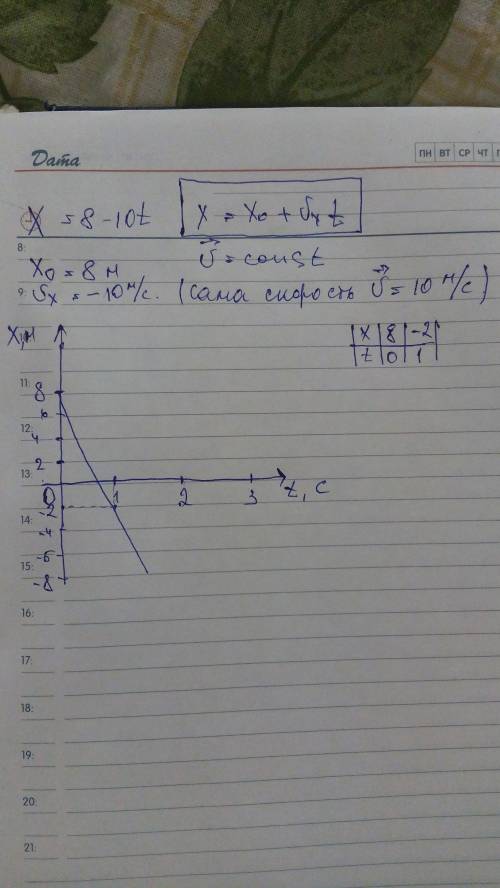 Дата
ПН ВТ СР ЧТ
X = 8 - 10t
x = x₀ + υₓt
8:
x₀ = 8 м
υ⃗ = const
9:
υₓ = -10 м/с. (сама скорость υ⃗ = 10 м/с)
X, м
x 8 -2
t 0 1
11:
8
6
12:
4
2
13:
0
1
2
3
t, с
-2
14:
-4
-6
15:
-8
16:
17:
18:
19:
20:
21: